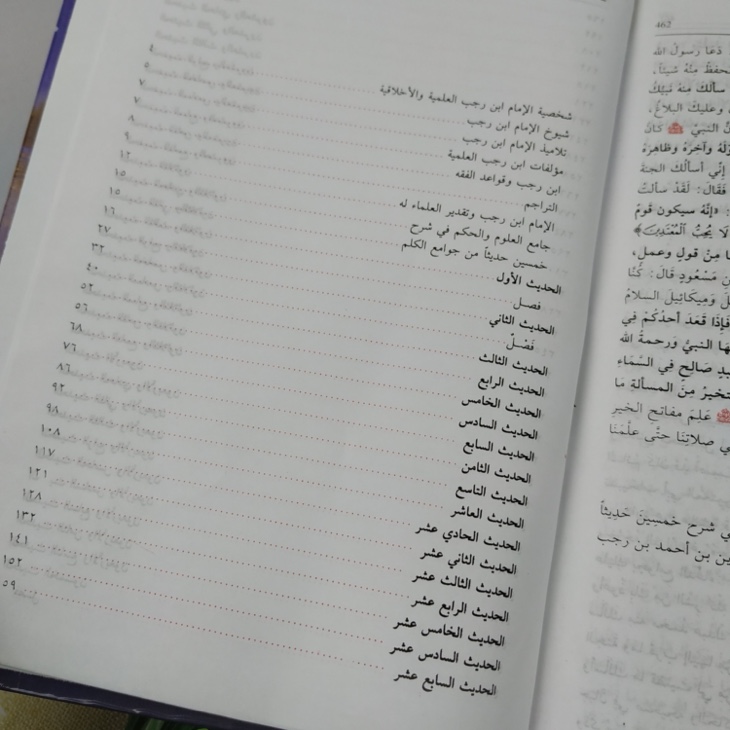 شخصية الإمام ابن رجب العلمية والأخلاقية ٤
شيوخ الإمام ابن رجب ٥
تلاميذ الإمام ابن رجب ٧
مؤلفات ابن رجب العلمية ٧
ابن رجب وقواعد الفقه ٨
التراجم ٩
الإمام ابن رجب وتقدير العلماء له ١٢
جامع العلوم والحكم في شرح ١٥
خمسين حديثاً من جوامع الكلم ١٥
الحديث الأول ١٦
فصل ٢٧
الحديث الثاني ٣٢
فَصْلٌ ٤٠
الحديث الثالث ٥٢
الحديث الرابع ٥٦
الحديث الخامس ٦٨
الحديث السادس ٧٦
الحديث السابع ٨٦
الحديث الثامن ٩٢
الحديث التاسع ٩٨
الحديث العاشر ١٠٨
الحديث الحادي عشر ١١٧
الحديث الثاني عشر ١٢١
الحديث الثالث عشر ١٢٨
الحديث الرابع عشر ١٣٢
الحديث الخامس عشر ١٤١
الحديث السادس عشر ١٥٢
الحديث السابع عشر ٥٩
462
دَعَا رَسولُ الله
حفظْ مِنْهُ شيئاً،
سألكَ مِنهُ نَبِيُّكَ
وعليكَ البلاغُ،
النبيَّ ﷺ كَانَ
وآخرَهُ وظاهِرَهُ
إنِّي أسألُك الجنةَ
فَقَالَ: لَقَدْ سألتَ
«إنَّهُ سيكون قومٌ
لَا يُحِبُّ ٱلْمُعْتَدِينَ﴾
مِنْ قولٍ وعملٍ،
مَسْعُودٍ قَالَ: كُنَّا
وَمِيكائِيلَ السلامُ
فَإذَا قَعَدَ أحدُكُمْ فِي
النبيُّ وَرحمةُ الله
صَالِحٍ فِي السَّمَاءِ
مِنَ المسألةِ مَا
عَلِمَ مفاتحَ الخيرِ
صلاتِنَا حتَّى علَّمَنَا
في شرح خَمسِينَ حَدِيثاً
بن أحمد بن رجب